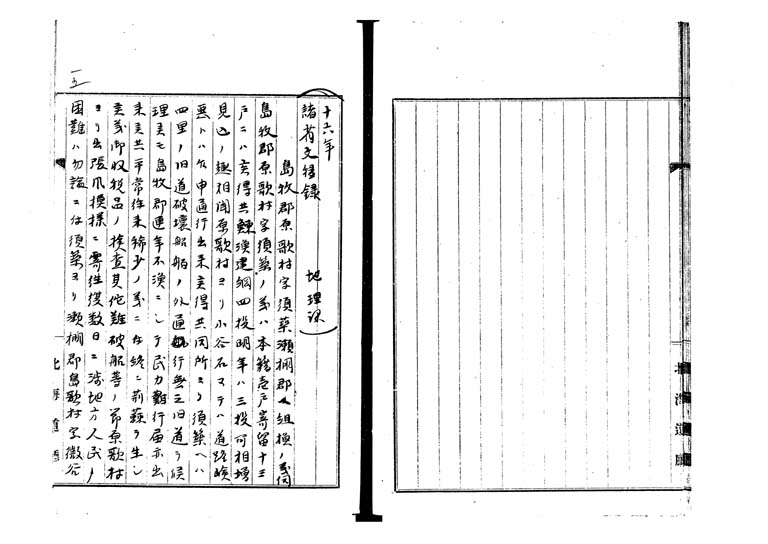 十六年
諸省文移録　地理課
島牧郡原歌村字須築瀬棚郡ヘ組換ノ義伺
島牧郡原歌村字須築ノ義ハ本籍壱戸寄留十三
戸ニハ候得共鰊漁建網四投明年ハ三投可相増
見込ノ趣相聞原歌村ヨリ小谷石マテハ道路嶮
悪トハ乍申通行出来候得共同所ヨリ須築ヘハ
四里ノ旧道破壊船舶ノ外通行無之旧道ヲ候
理候モ島牧郡連年不漁ニシテ民力難行届亦出
来候共平常往来稀少ノ義ニ付終ニ荊蘇ヲ生シ
候義御収税品ノ検査其他難破船等ノ節原歌村
ヨリ出張爪模様ニ寄往復数日ニ渉地方人民ノ
困難ハ勿論ニ付須築ヨリ瀬棚郡島歌村字
北海道庁
一五
北海道庁